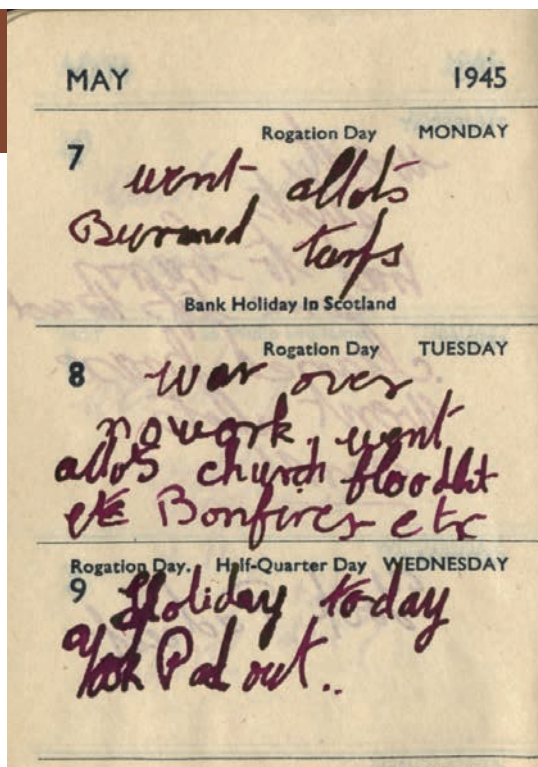 MAY 1945
Rogation Day MONDAY
7
went allots
Burned turfs
Bank Holiday In Scotland
Rogation Day TUESDAY
8
War over
no work, went
allots church floodlit
etc Bonfires etc
Rogation Day. Half-Quarter Day WEDNESDAY
9
Holiday today
took Pad out..